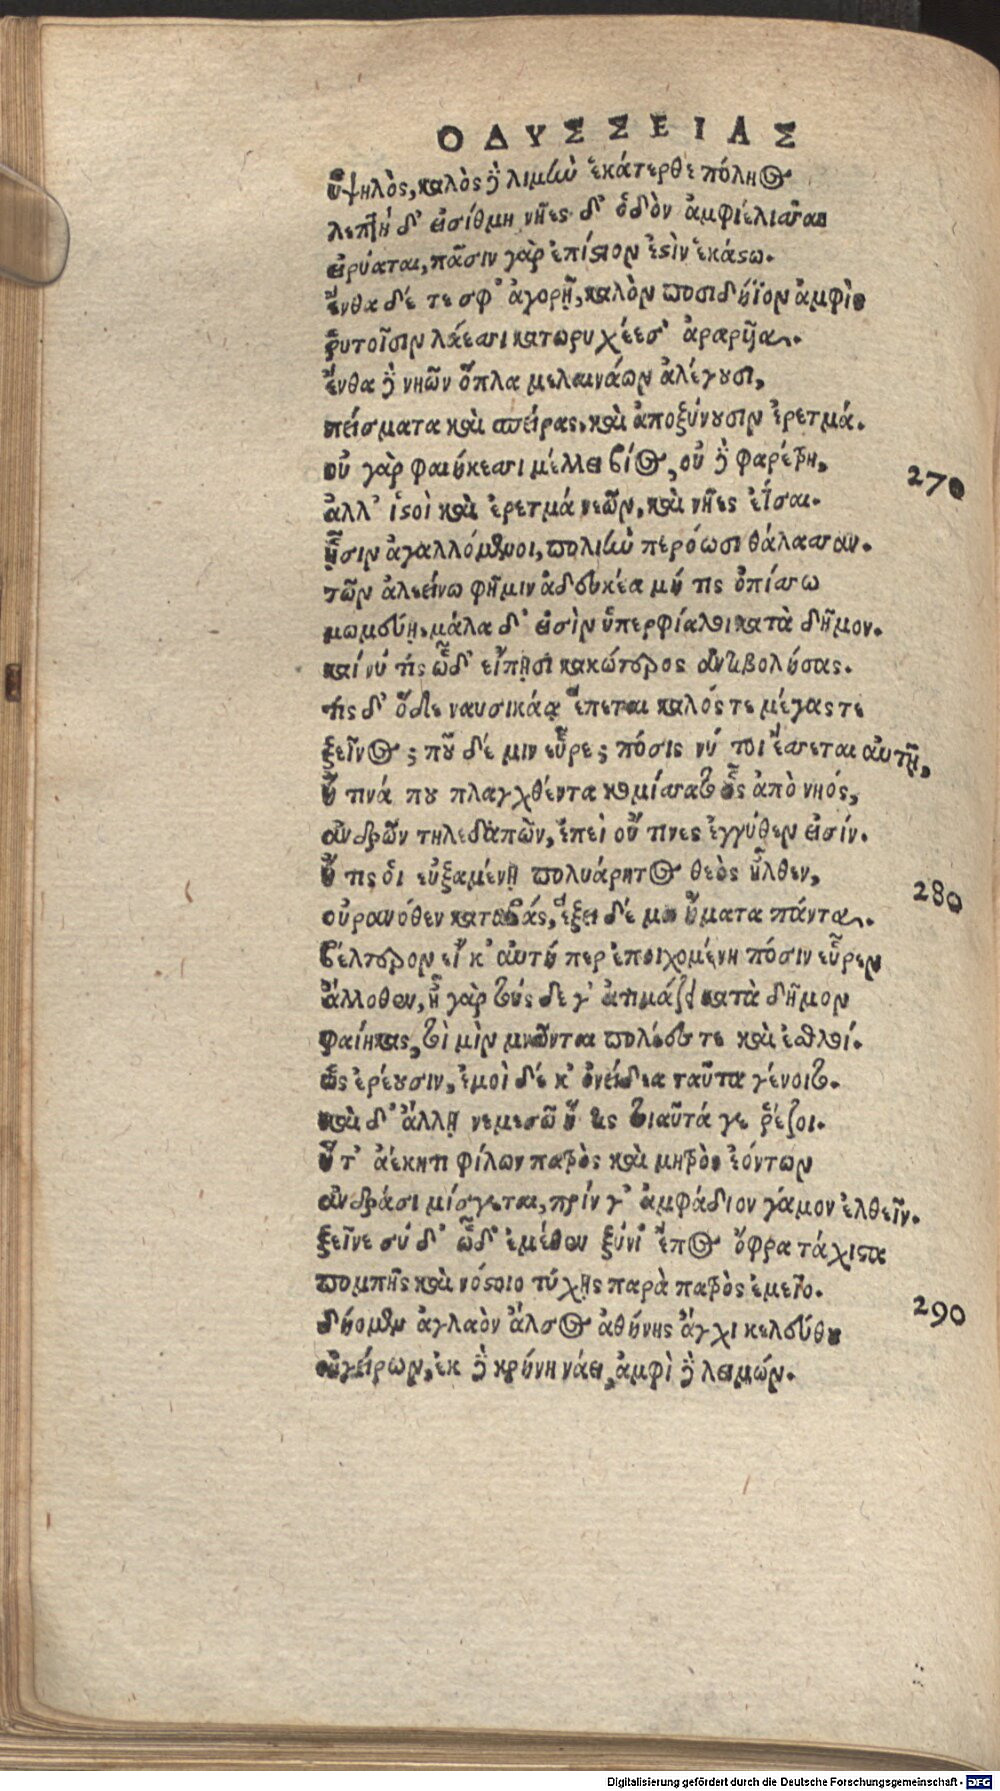 ΟΔΥΣΣΕΙΑΣ
ὑψηλὸς, καλὸς δὲ λιμὴν ἑκάτερθε πόληος
λεπτὴ δ' εἰσίθμη νῆες δ' ὁδὸν ἀμφιέλισσαι
εἰρύαται, πᾶσιν γὰρ ἐπίστιον ἐστὶν ἑκάστω.
ἔνθα δέ τε σφ' ἀγορῆ, καλὸν ποσιδήϊον ἀμφὶς
ῥυτοῖσιν λάεσσι κατωρυχέεσ' ἀραρῦα.
ἔνθα δὲ νηῶν ὅπλα μελαινάων ἀλέγουσι,
πείσματα καὶ σπείρας, καὶ ἀποξύνουσιν ἐρετμά.
οὐ γὰρ φαιήκεσσι μέλλει βίος, οὐ δὲ φαρέτρη,
270
ἀλλ' ἱστοὶ καὶ ἐρετμά νεῶν, καὶ νῆες ἐΐσαι.
ᾗσιν ἀγαλλόμενοι, πολιὴν περόωσι θάλασσαν.
τῶν ἀλεείνω φῆμιν ἀδευκέα μή τις ὀπίσσω
μωμεύῃ. μάλα δ' εἰσὶν ὑπερφίαλοι κατὰ δῆμον.
καί νύ τις ὧδ' εἴπῃσι κακώτερος ἀντιβολήσας.
τίς δ' ὅδε ναυσικάᾳ ἕπεται καλός τε μέγας τε
ξεῖνος; ποῦ δέ μιν εὗρε; πόσις νύ τοι ἔσσεται αὐτῇ,
ἤ τινά που πλαγχθέντα κομίσσατο ἧς ἀπὸ νηός,
ἀνδρῶν τηλεδαπῶν, ἐπεὶ οὔ τινες ἐγγύθεν εἰσίν.
ἤ τις οἱ εὐξαμένῃ πολυάρητος θεὸς ἦλθεν,
280
οὐρανόθεν καταβάς, ἕξει δέ μιν ἤματα πάντα.
βέλτερον εἴ κ' αὐτή περ ἐποιχομένη πόσιν εὗρεν
ἄλλοθεν, ἦ γὰρ τούς δε γ' ἀτιμάζει κατὰ δῆμον
φαίηκας, τοὶ μὶν μνῶνται πολέες τε καὶ ἐσθλοί.
ὣς ἐρέουσιν, ἐμοὶ δέ κ' ὀνείδεα ταῦτα γένοιτο.
καὶ δ' ἄλλῃ νεμεσῶ ἥ τις τοιαῦτά γε ῥέζοι.
ἥ τ' ἀέκητι φίλων πατρὸς καὶ μητρὸς ἐόντων
ἀνδράσι μίσγεται, πρίν γ' ἀμφάδιον γάμον ἐλθεῖν.
ξεῖνε σύ δ' ὧδ' ἐμέθεν ξύνι ἔπος ὄφρα τάχιστα
πομπῆς καὶ νόστοιο τύχῃς παρὰ πατρὸς ἐμεῖο.
290
δήομεν ἀγλαὸν ἄλσος ἀθήνης ἄγχι κελεύθου
αἰγείρων, ἐκ δὲ κρήνη νάει, ἀμφὶ δὲ λειμών.
Digitalisierung gefördert durch die Deutsche Forschungsgemeinschaft - DFG